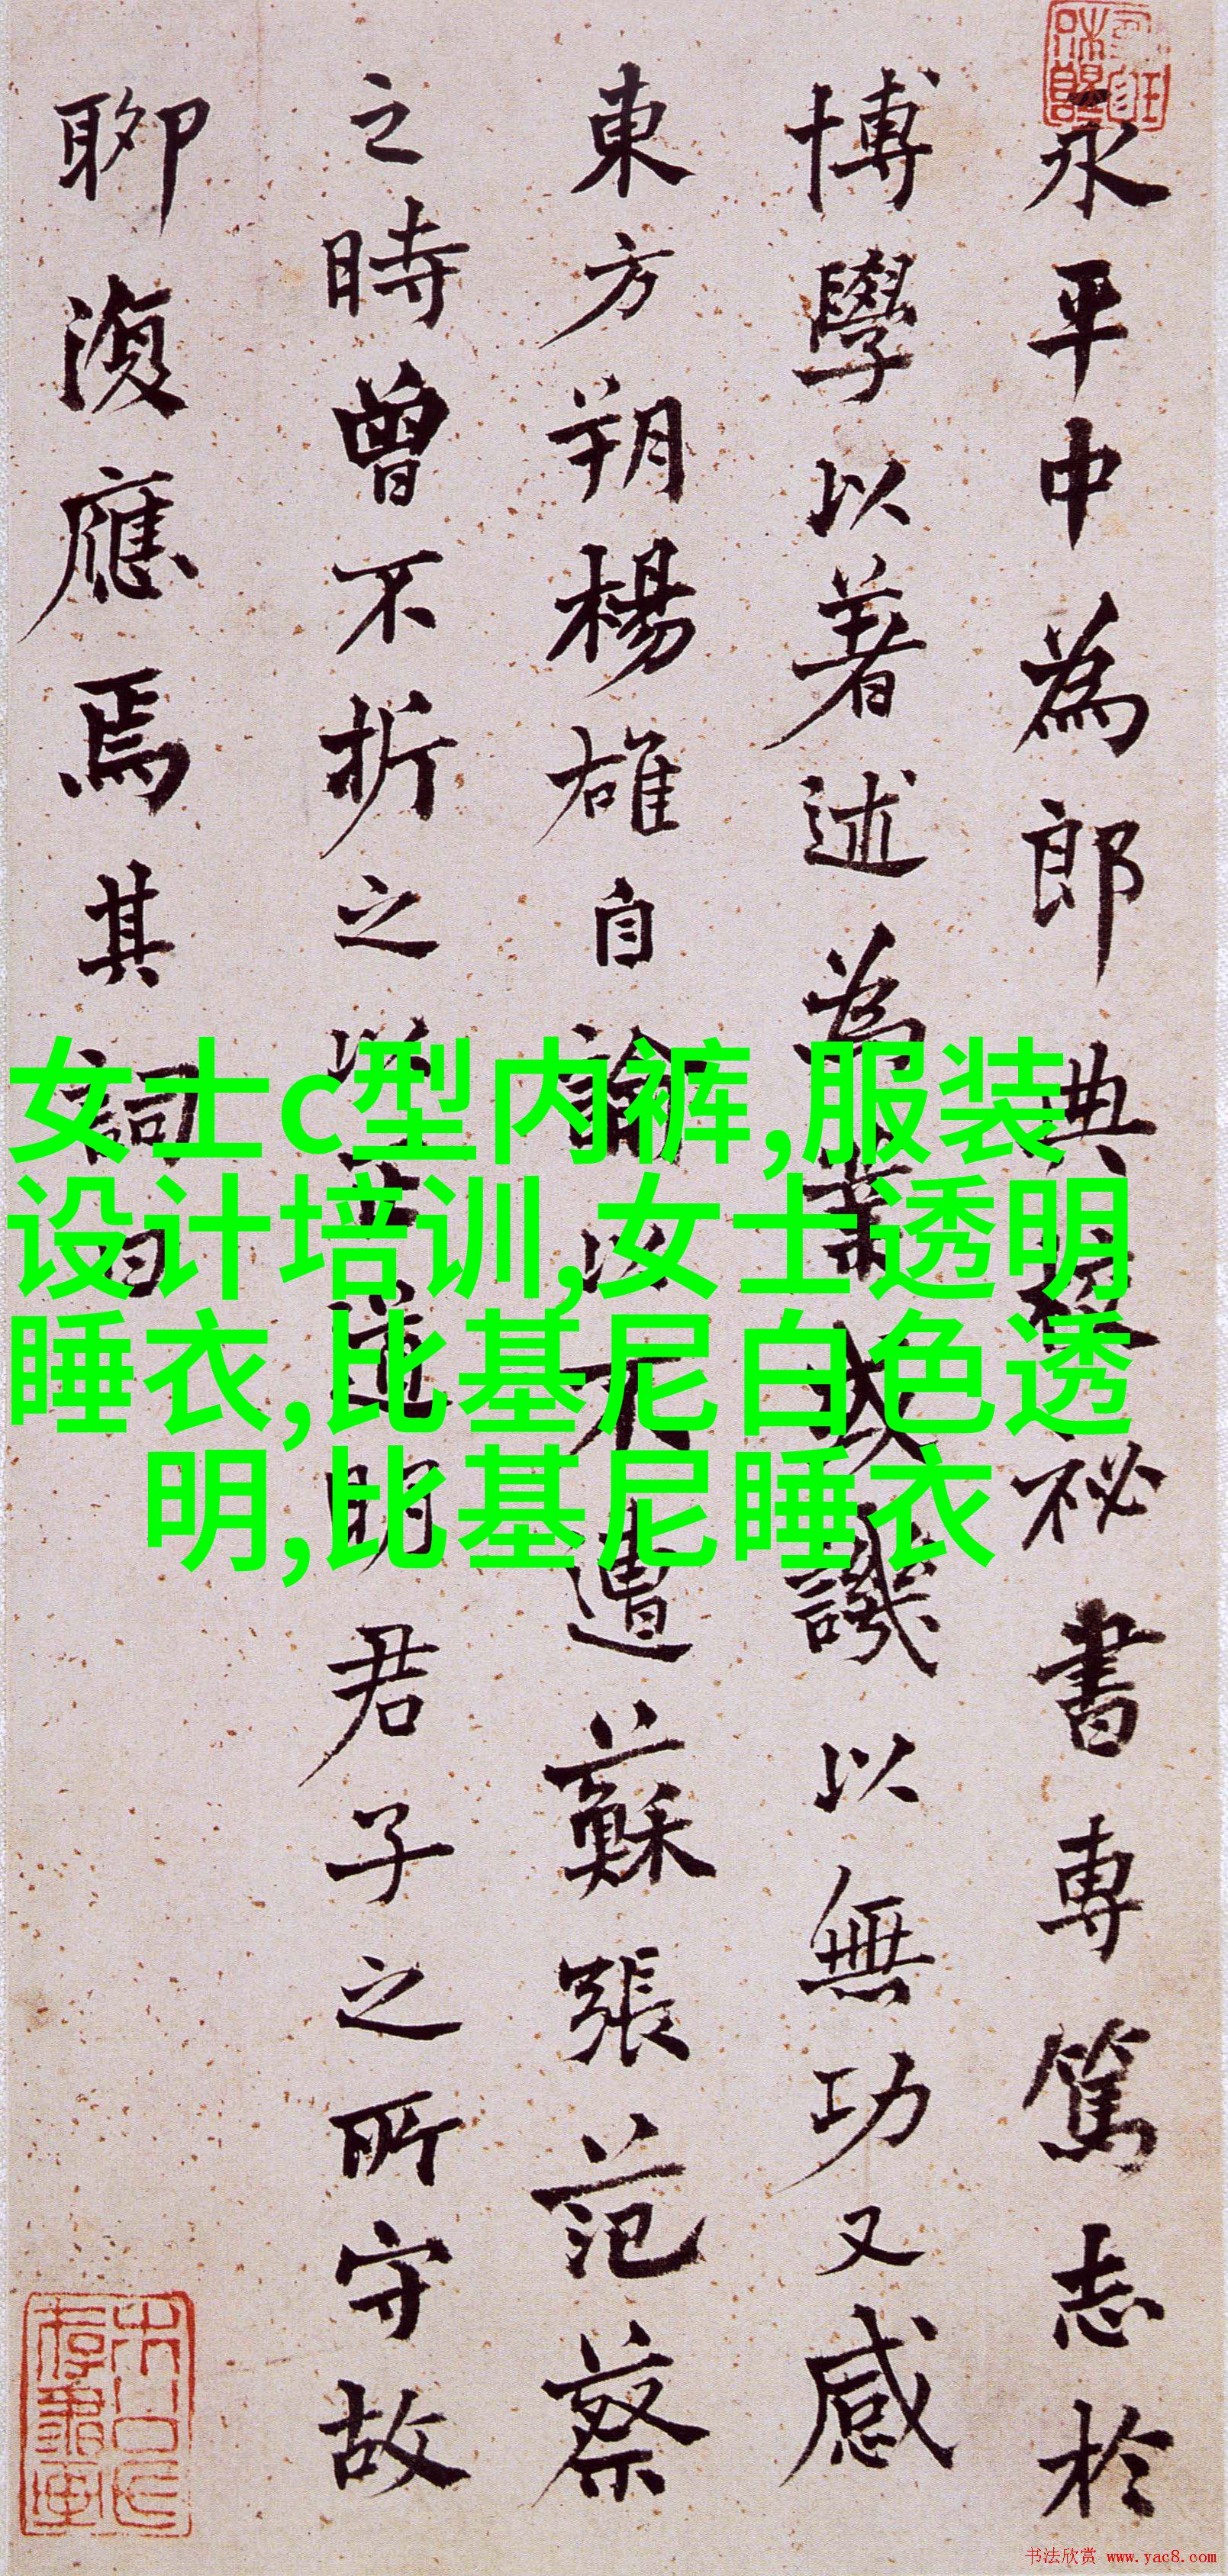 永平中為郎典校祕書專篤志於
博學以著述為業或譏以無功又感
東方朔楊雄自論以不遭蘇張范蔡
之時曾不折之以正道明君子之所守故
聊復應焉其詞曰
女士c型内裤,服装
设计培训,女士透明
睡衣,比基尼白色透
明,比基尼睡衣
书法欣赏 www.yac8.com